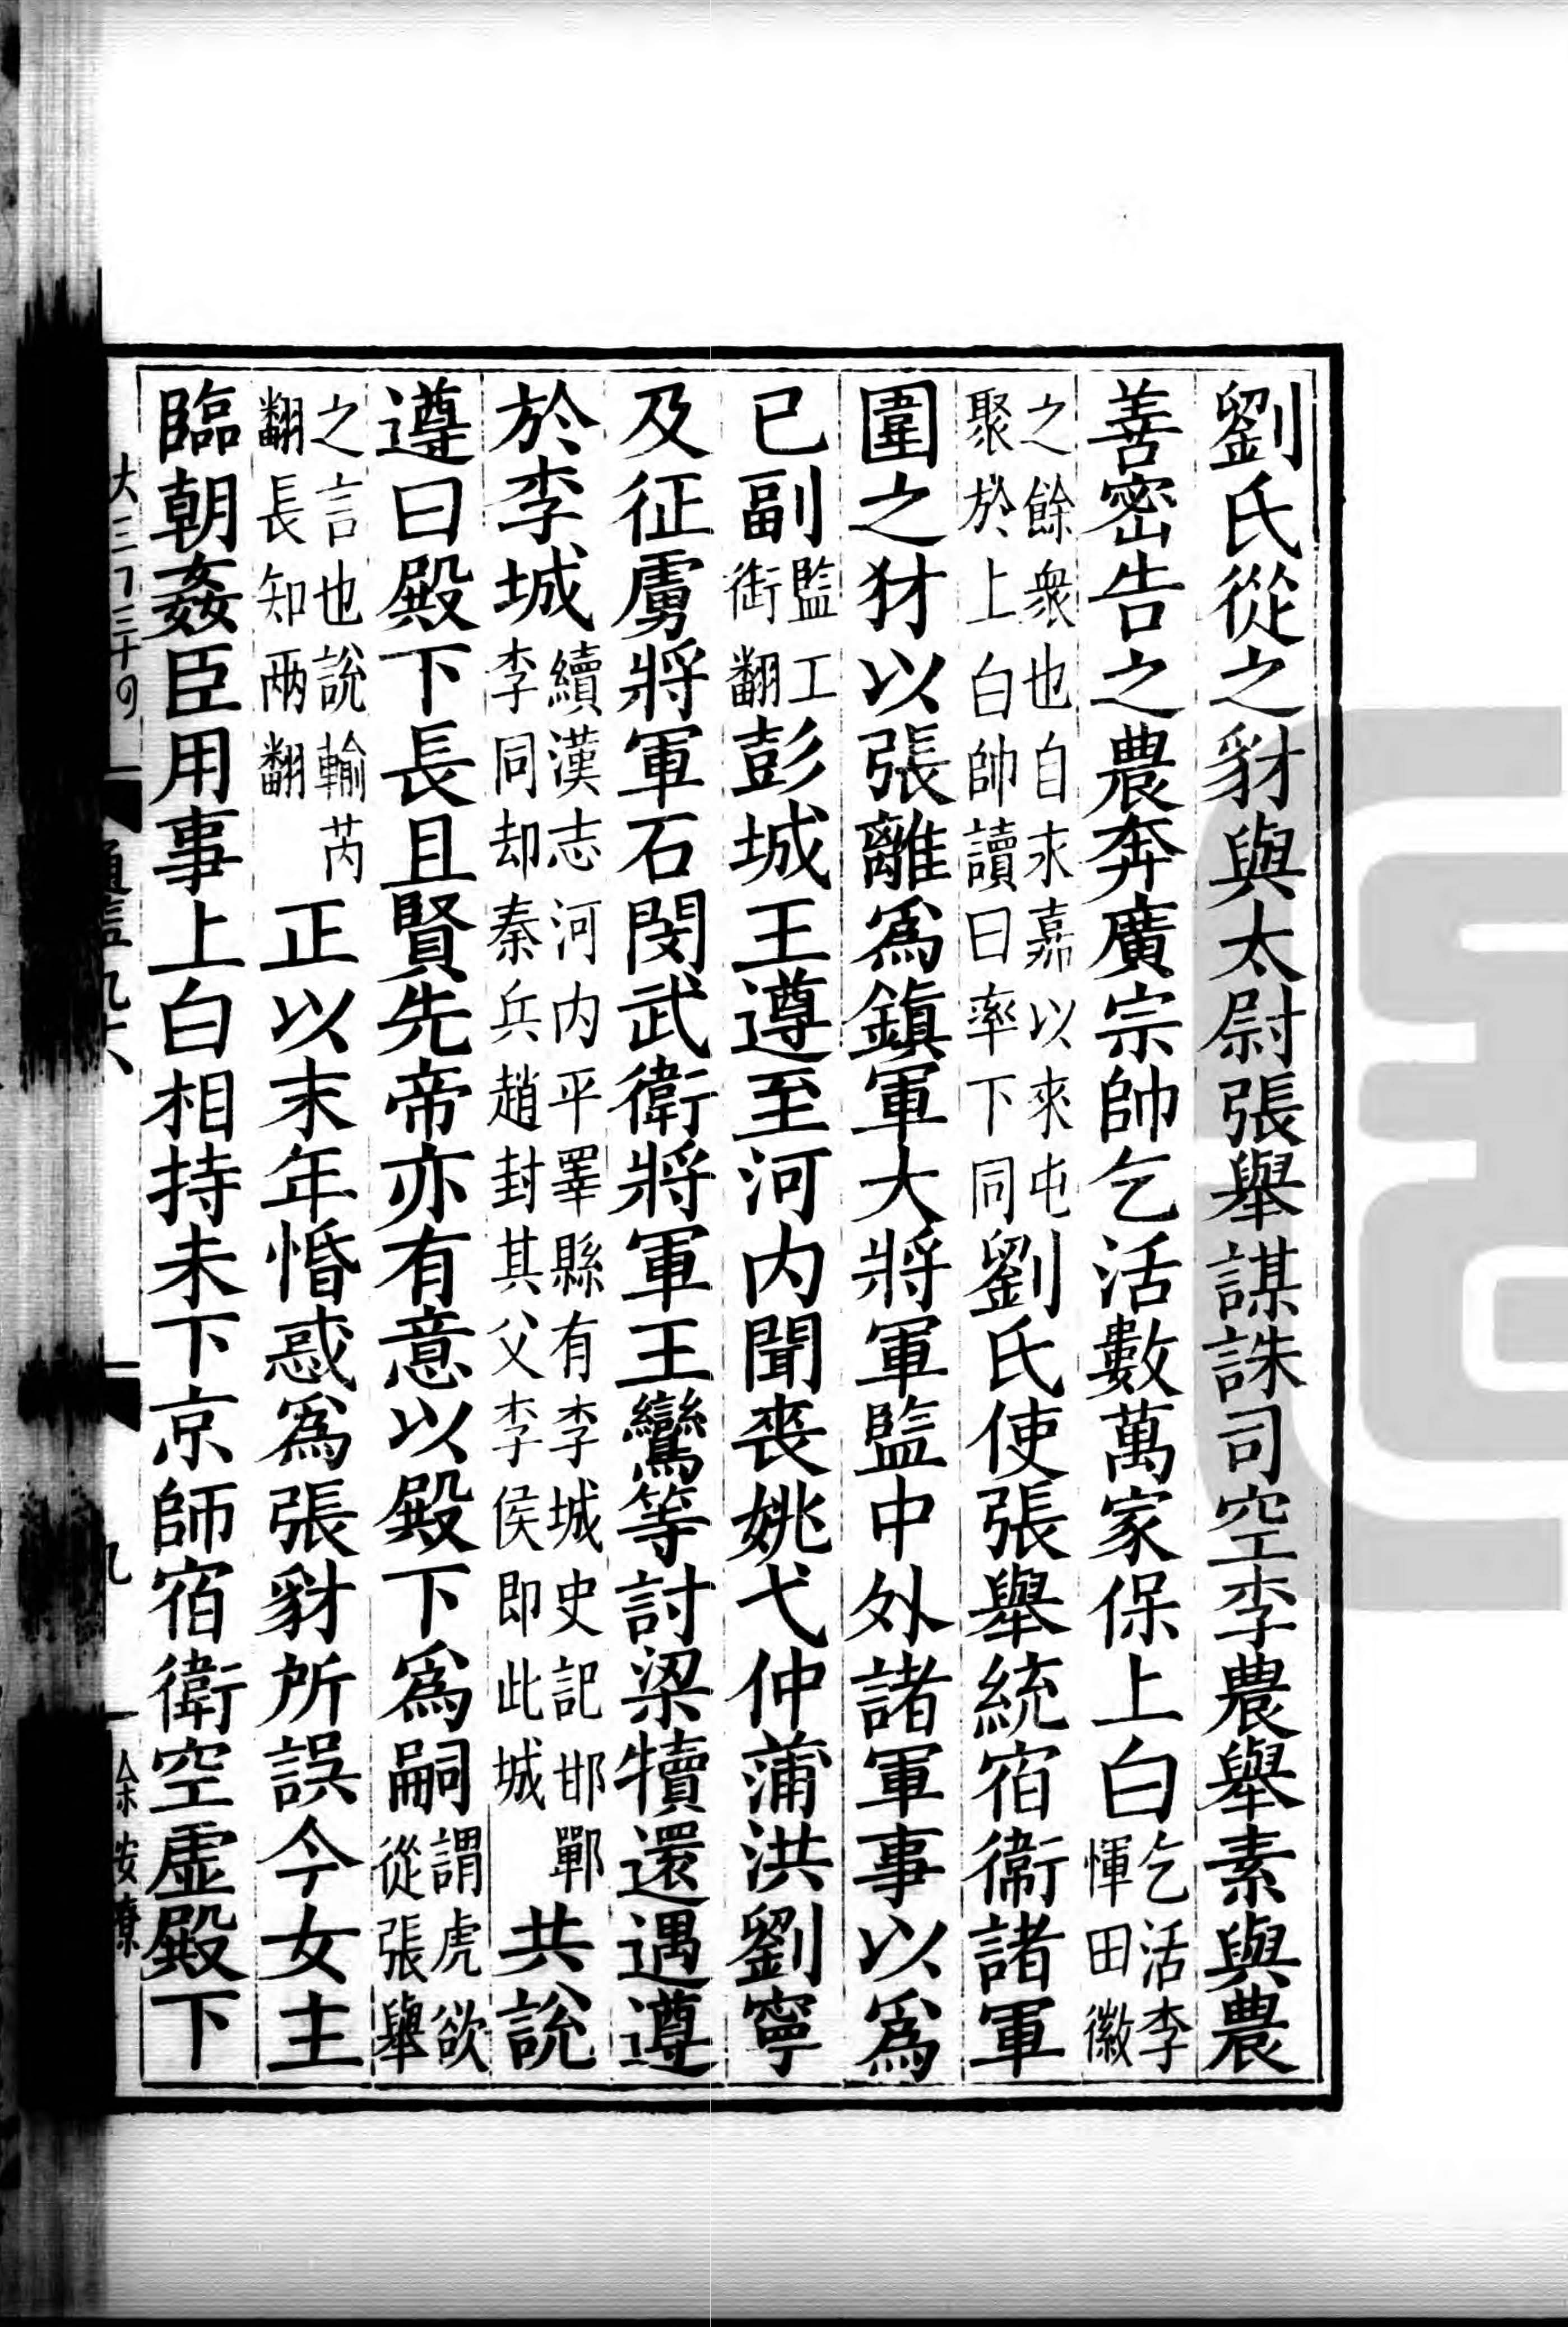 劉氏從之豺與太尉張舉謀誅司空李農舉素與農
善密告之農奔廣宗帥乞活數萬家保上白乞活李惲田徽
之餘衆也自永嘉以來屯聚於上白帥讀曰率下同劉氏使張舉統宿衞諸軍
圍之犲以張離爲鎮軍大將軍監中外諸軍事以爲
已副監工銜翻彭城王遵至河内聞喪姚弋仲蒲洪劉寧
及征虜將軍石閔武衛將軍王鸞等討梁犢還遇遵
於李城續漢志河内平睪縣有李城史記邯鄲李同却秦兵趙封其父李侯即此城共說
遵曰殿下長且賢先帝亦有意以殿下爲嗣謂虎欲從張舉
之言也說輸芮翻長知兩翻正以末年惛惑爲張豺所誤今女主
臨朝姦臣用事上白相持未下京師宿衛空虛殿下
九